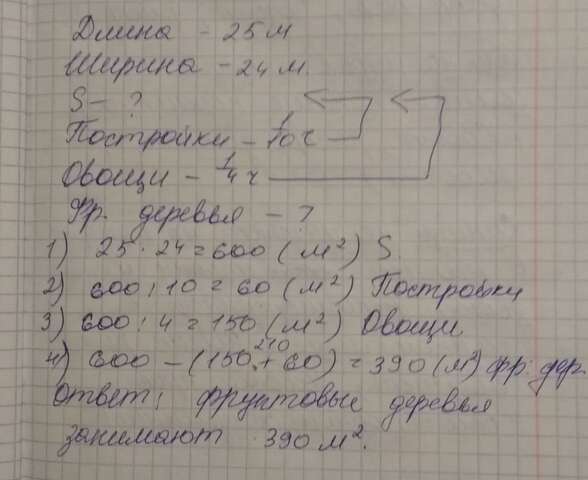 Длина - 25 м
Ширина - 24 м.
S - ?
Постройки - 1/10 ч
Овощи - 1/4 ч
Фр. деревья - ?
1) 25 · 24 = 600 (м²) S.
2) 600 : 10 = 60 (м²) Постройки
3) 600 : 4 = 150 (м²) Овощи
210
4) 600 - (150 + 60) = 390 (м²) фр. дер.
Ответ: фруктовые деревья
занимают 390 м².